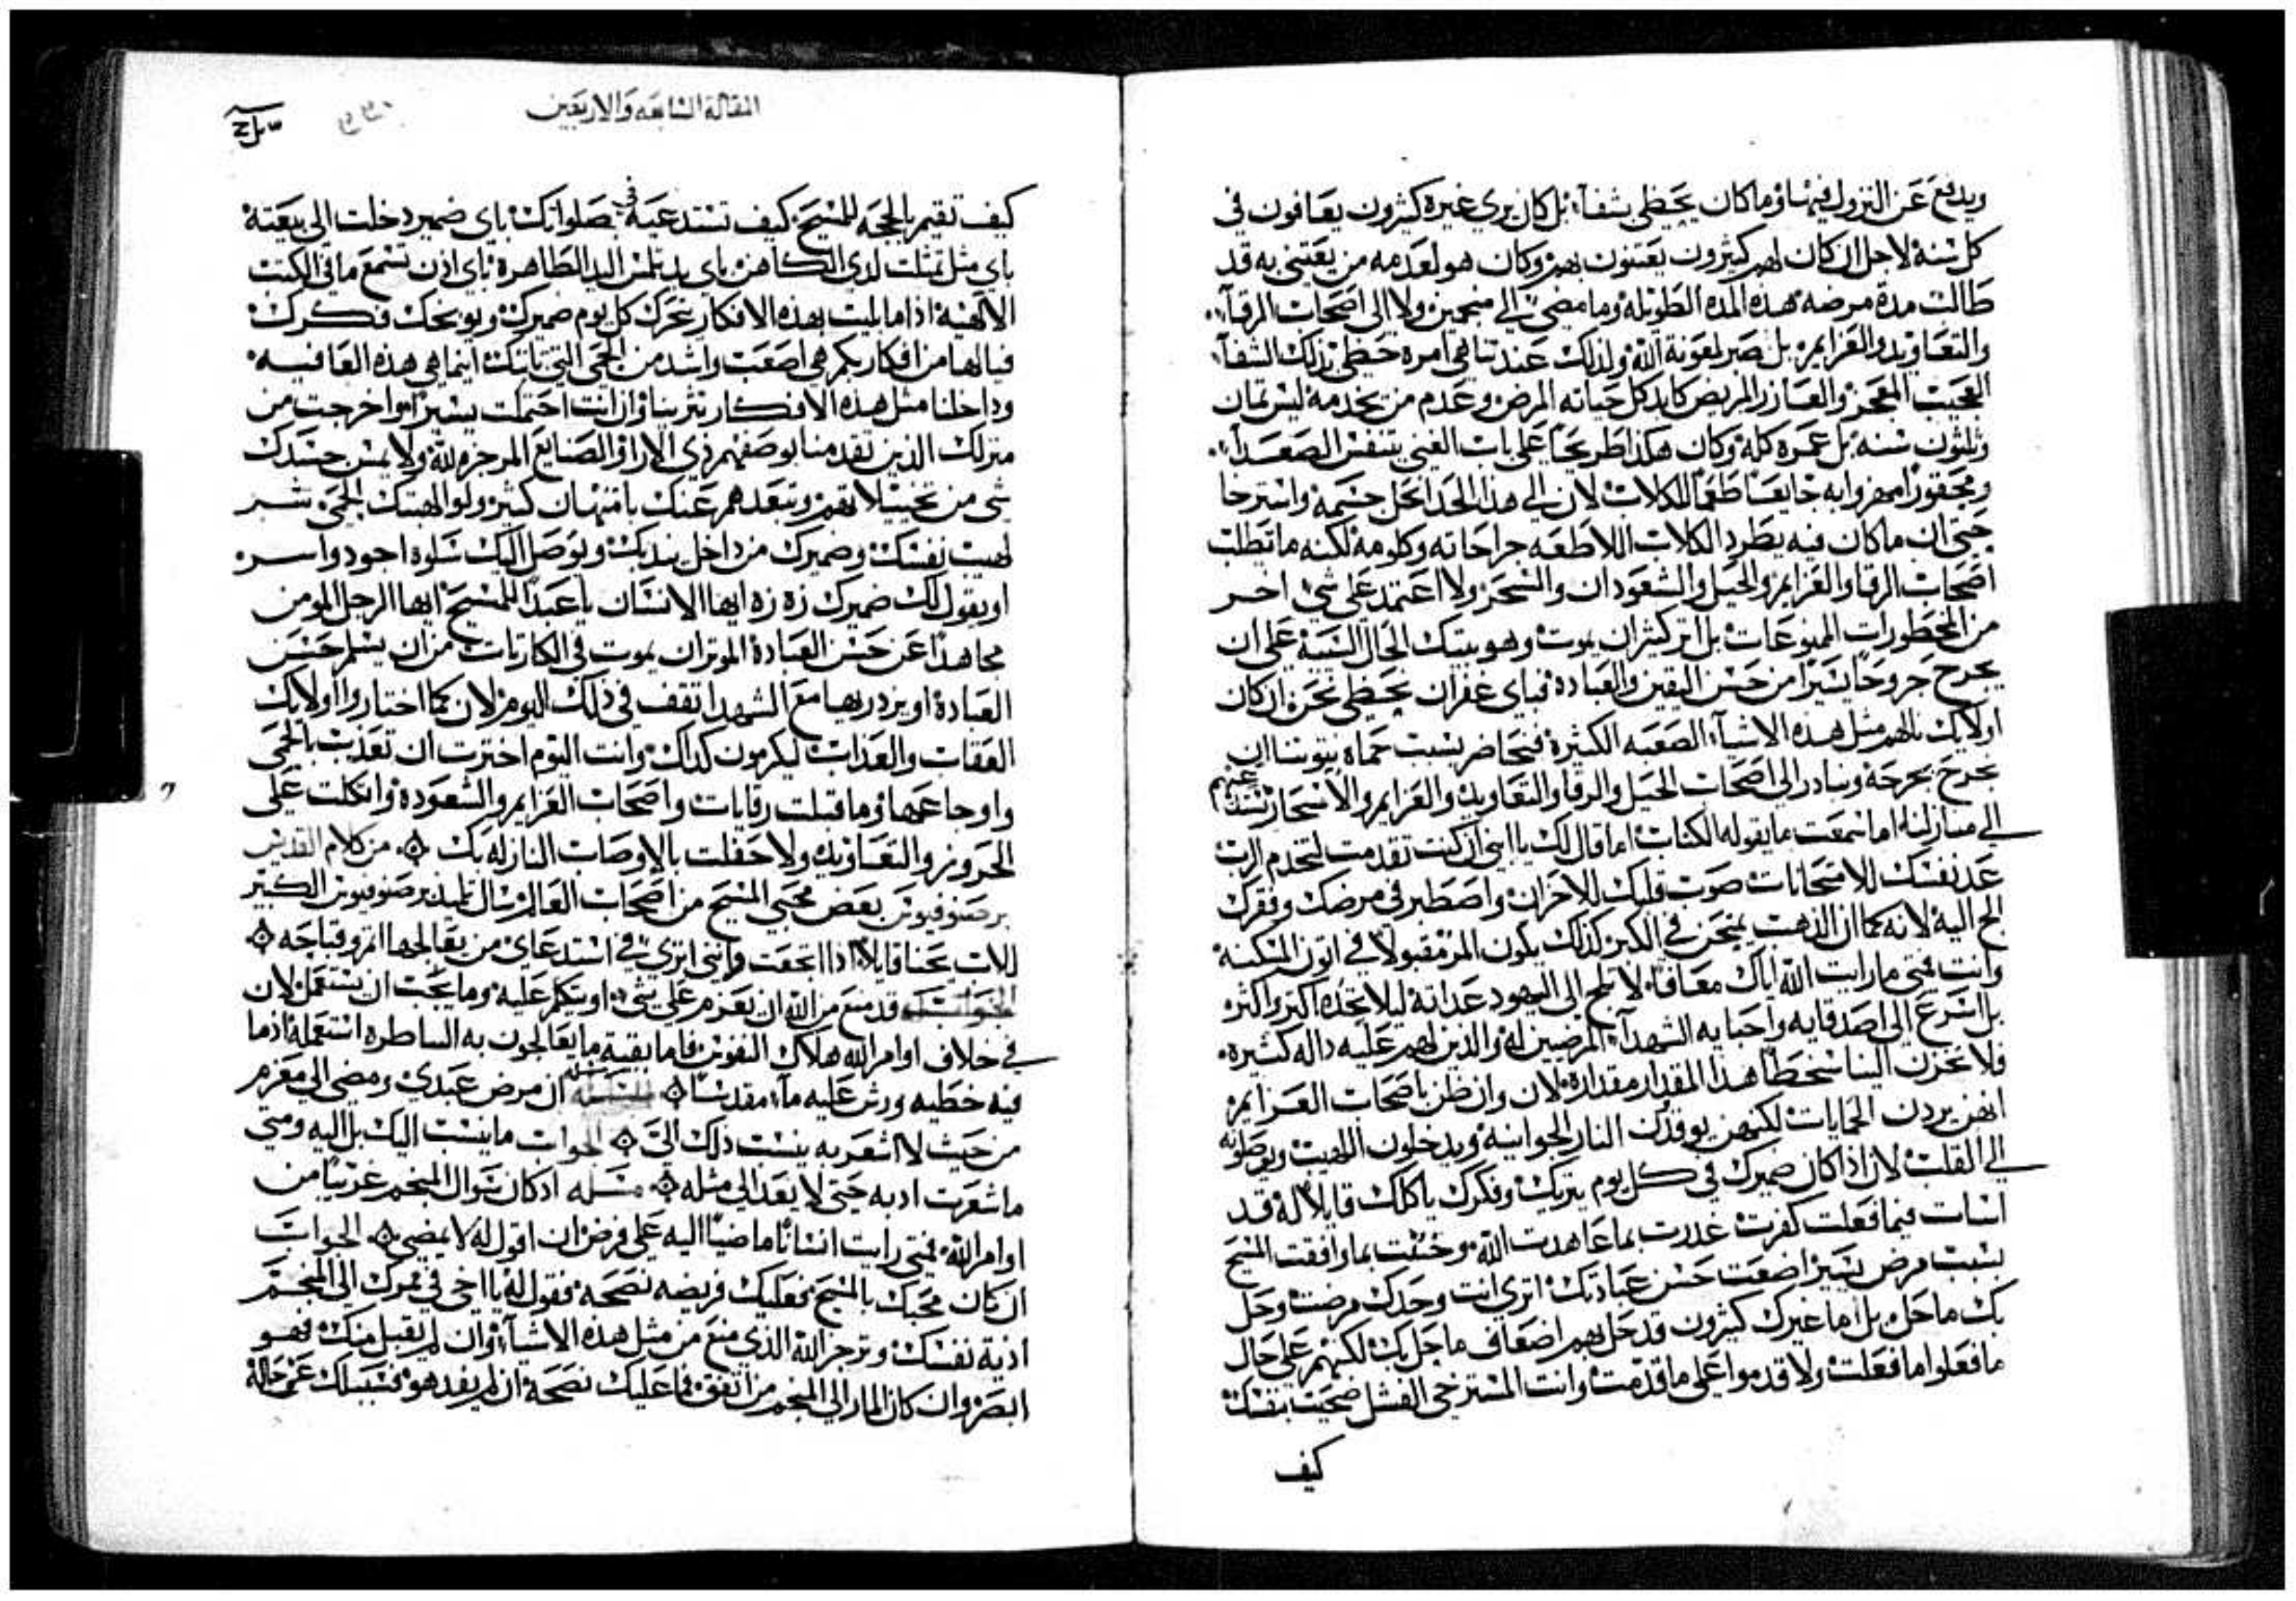 ويدفع عن النزول فيها وما كان يحظى بشفآء بل كان يرى غيره كثيرون يعافون في
كل سنة لاجل ان كان لهم كثيرون يعتنون بهم وكان هو لعدمه من يعتنى به قد
طالت مدة مرضه هذه المدة الطويلة وما مضى الى منجمين ولا الى اصحاب الرقآء
والتعاويذ والعزايم بل صبر لمعونة الله ولذلك عند تناهي امره حظى بذلك الشفآء
العجيب المعجز والعازر المريض كابد كل حياته المرض وعدم من يخدمه ليس ثمان
وثلثون سنه بل عمره كله وكان هكذا طريحًا على باب الغني يتنفس الصعدآ
ومحقورًا مهزوا به جايعًا طعمًا للكلاب لان الى هذا الحد انحل جسمه واسترخا
حتى ان ما كان فيه يطرد الكلاب اللاطعه جراحاته وكلومه لكنه ما تطلب
اصحاب الرقا والعزايم والحيل والشعوذات والسحر ولا اعتمد على شي اخر
من المحظورات الممنوعات بل اثر كثيرًا ان يموت وهو بتيك الحال السيّة على ان
يجرح جروحًا يسيرًا من حسن اليقين والعبادة فباي غفران نحظى نحن ان كان
اولايك نالهم مثل هذه الاشيآء الصعبه الكثيرة فنحاضر بسبب حماة نيتوتنا ان
نجرح بجرحة ونبادر الى اصحاب الحيل والرقا والتعاويذ والعزايم والاسحار نستدعيهم
الى منازلنا اما سمعت ما يقوله الكتاب اما قال لك يا ابني ان كنت تقدمت لتخدم الرب
عد نفسك للامتحانات صوب قلبك للاحزان واصطبر في مرضك وفقرك
الح اليه لانه كما ان الذهب يمتحن في الكير كذلك يكون المر مقبولًا في اتون المسكنه
وانت فمتى ما رايت الله اياك معافًا لا تلح الى اليهود عداته ليلا تحده اكبر واكثر
بل اسرع الى اصدقايه واحبايه الشهدآء المرضيين له والذين لهم عليه داله كثيره
فلا تحزن الينا سخطًا هذا المقدار مقداره لان وان ظن باصحاب العزايم
انهن يردن الحمايات لكنهن يوقدن النار الجوانيه ويدخلون اللهيب ويوصلونه
الى القلب لان اذا كان ضميرك في كل يوم يتريك وفكرك ياكلك قايلًا له قد
اسات فيما فعلت كفرت غدرت بما عاهدت الله وخنقت بما وافقت المسيح
بسبب مرض يسير اضعت حسن عبادتك اترى انت وحدك مرضت وحل
بك ما حل بل اما غيرك كثيرون قد حل بهم اضعاف ما حل بك لكنهم على حال
ما فعلوا ما فعلت ولا قدموا على ما قدمت وانت المسترخي الفشل ضحيت بنفسك
كيف
المقاله السابعه والاربعين
كيف تقيم الحجه للمسيح كيف تستدعيه في صلواتك باي ضمير دخلت الى بيعته
باي مثل تمثلت لدى الكاهن باي يد تلمس اليد الطاهرة باي اذن تسمع ما في الكتب
الالهية اذا ما بليت بهذه الافكار تحرك كل يوم ضميرك ويوبخك فكرك
فيالها من افكار بكم هي اصعب واشد من الحمى التي تاتيك اينما هي هذه العافيه
وداخلنا مثل هذه الافكار تثربنا وان انت احتملت يسيرًا واخرجت من
منزلك الذين تقدمنا بوصفهم ذي الارا والصنايع المرجزه لله ولا يمس جسدك
شي من تخييلاتهم وتبعدهم عنك بامتهان كثير ولو الهبتك الحمى شبر
لهيب نفسك وضميرك من داخل ينديك ويوصل اليك سلوة اجود واسر
او يقول لك ضميرك زه زه ايها الانسان يا عبد المسيح ايها الرجل المومن
مجاهدًا عن حسن العبادة الموثر ان يموت في الكاربات من ان يسلم حسن
العبادة او يزدريها مع الشهدا تقف في ذلك اليوم لان كما اختاروا اولايك
العقاب والعذاب ليكرمون كذاك وانت اليوم اخترت ان تعذب بالحمى
واوجاعها وما قبلت رقايات واصحاب العزايم والشعوذه واتكلت على
الحروز والتعاويذ ولا حفلت بالاوصاب النازله بك من كلام القديس
برصنوفيوس بعض محبي المسيح من اصحاب العالم سال تلميذ برصنوفيوس الكبير
الاب يحنا قايلًا اذا اتجعت وانني اترى في استدعاي من يعالجها اثم وقباحه
الجواب قد منع من الله ان يعزم على شي او يتكلم عليه وما يجب ان يستعمل لان
في خلاف اوامر الله هلاك النفوس فاما بقية ما يعالجون به الساطره استعمله اذ ما
فيه خطيه ورش عليه مآء مقدسًا مسله ان مرض عبدى ومضى الى معزم
من حيث لا اشعر به ينسب ذلك الىّ الجواب ما ينسب اليك بل اليه ومتى
ما شعرت ادبه حتى لا يعد الى مثله مسله اذ كان سوال المنجم غريبًا من
اوامر الله فمتى رايت انسانًا ماضيًا اليه على فرض ان اقول له لا يمضي الجواب
ان كان محبك بالمسيح فعليك فريضه نصحه فقول له يا اخي في مرك الى المنجم
اذية نفسك وترجز الله الذي منع من مثل هذه الاشيآء وان لم يقبل منك فهو
ابصر وان كان المار الى المنجم من اتفق فما عليك نصحه ان لم يفد هو فسبيلك عن حاله